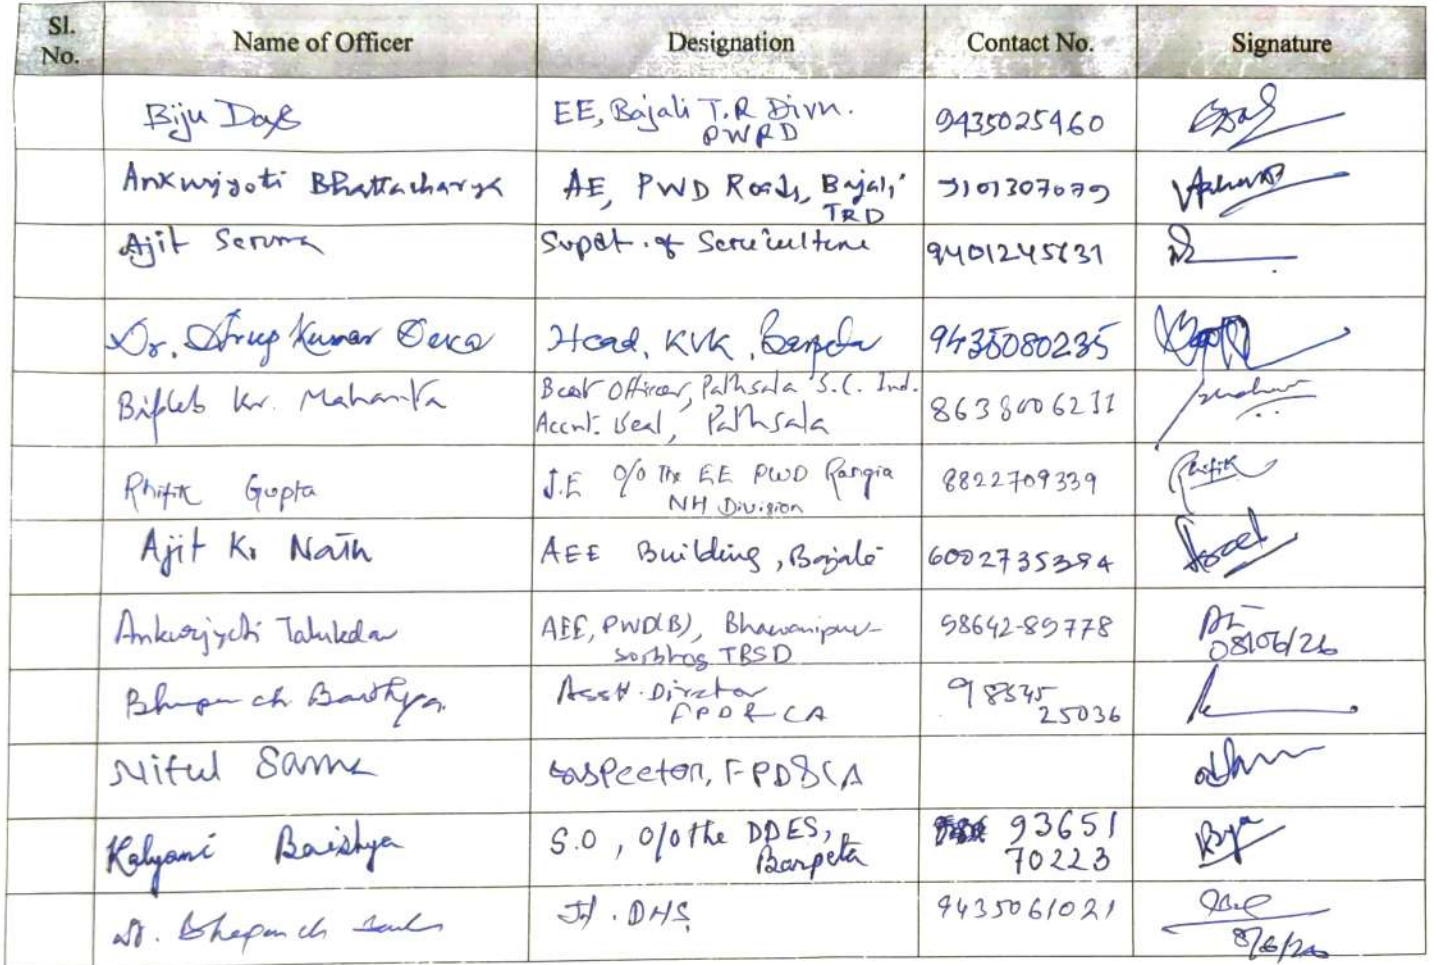 Sl. No. Name of Officer Designation Contact No. Signature
Biju Das EE, Bajali T.R Divn. PWRD 9435025460
Ankurjyoti Bhattacharya AE, PWD Roads, Bajali TRD 9101307079
Ajit Sarma Supdt. of Sericulture 9401245631
Dr. Arup Kumar Deka Head, KVK, Barpeta 9435080235
Biplab Kr. Mahanta Beat Officer, Pathsala S.C. Ind.
Accnt. Beat, Pathsala 8638006211
Rhitik Gupta J.E O/o The EE PWD Rangia
NH Division 8822709339 Rhitik
Ajit Kr Nath AEE Building, Bajali 6002735394
Ankurjyoti Talukdar AEE, PWD(B), Bhawanipur-
Sorbhog TBSD 98642-89778 08/06/26
Bhupen ch. Baishya Asstt. Director
FPD & CA 98545
25036
Nitul Sarma Inspector, FPD&CA
Kalyani Baishya S.O, O/o the DDES,
Barpeta 93651
70223 Bya
Dr. Bhupen ch Jt. DHS 9435061021
8/6/26